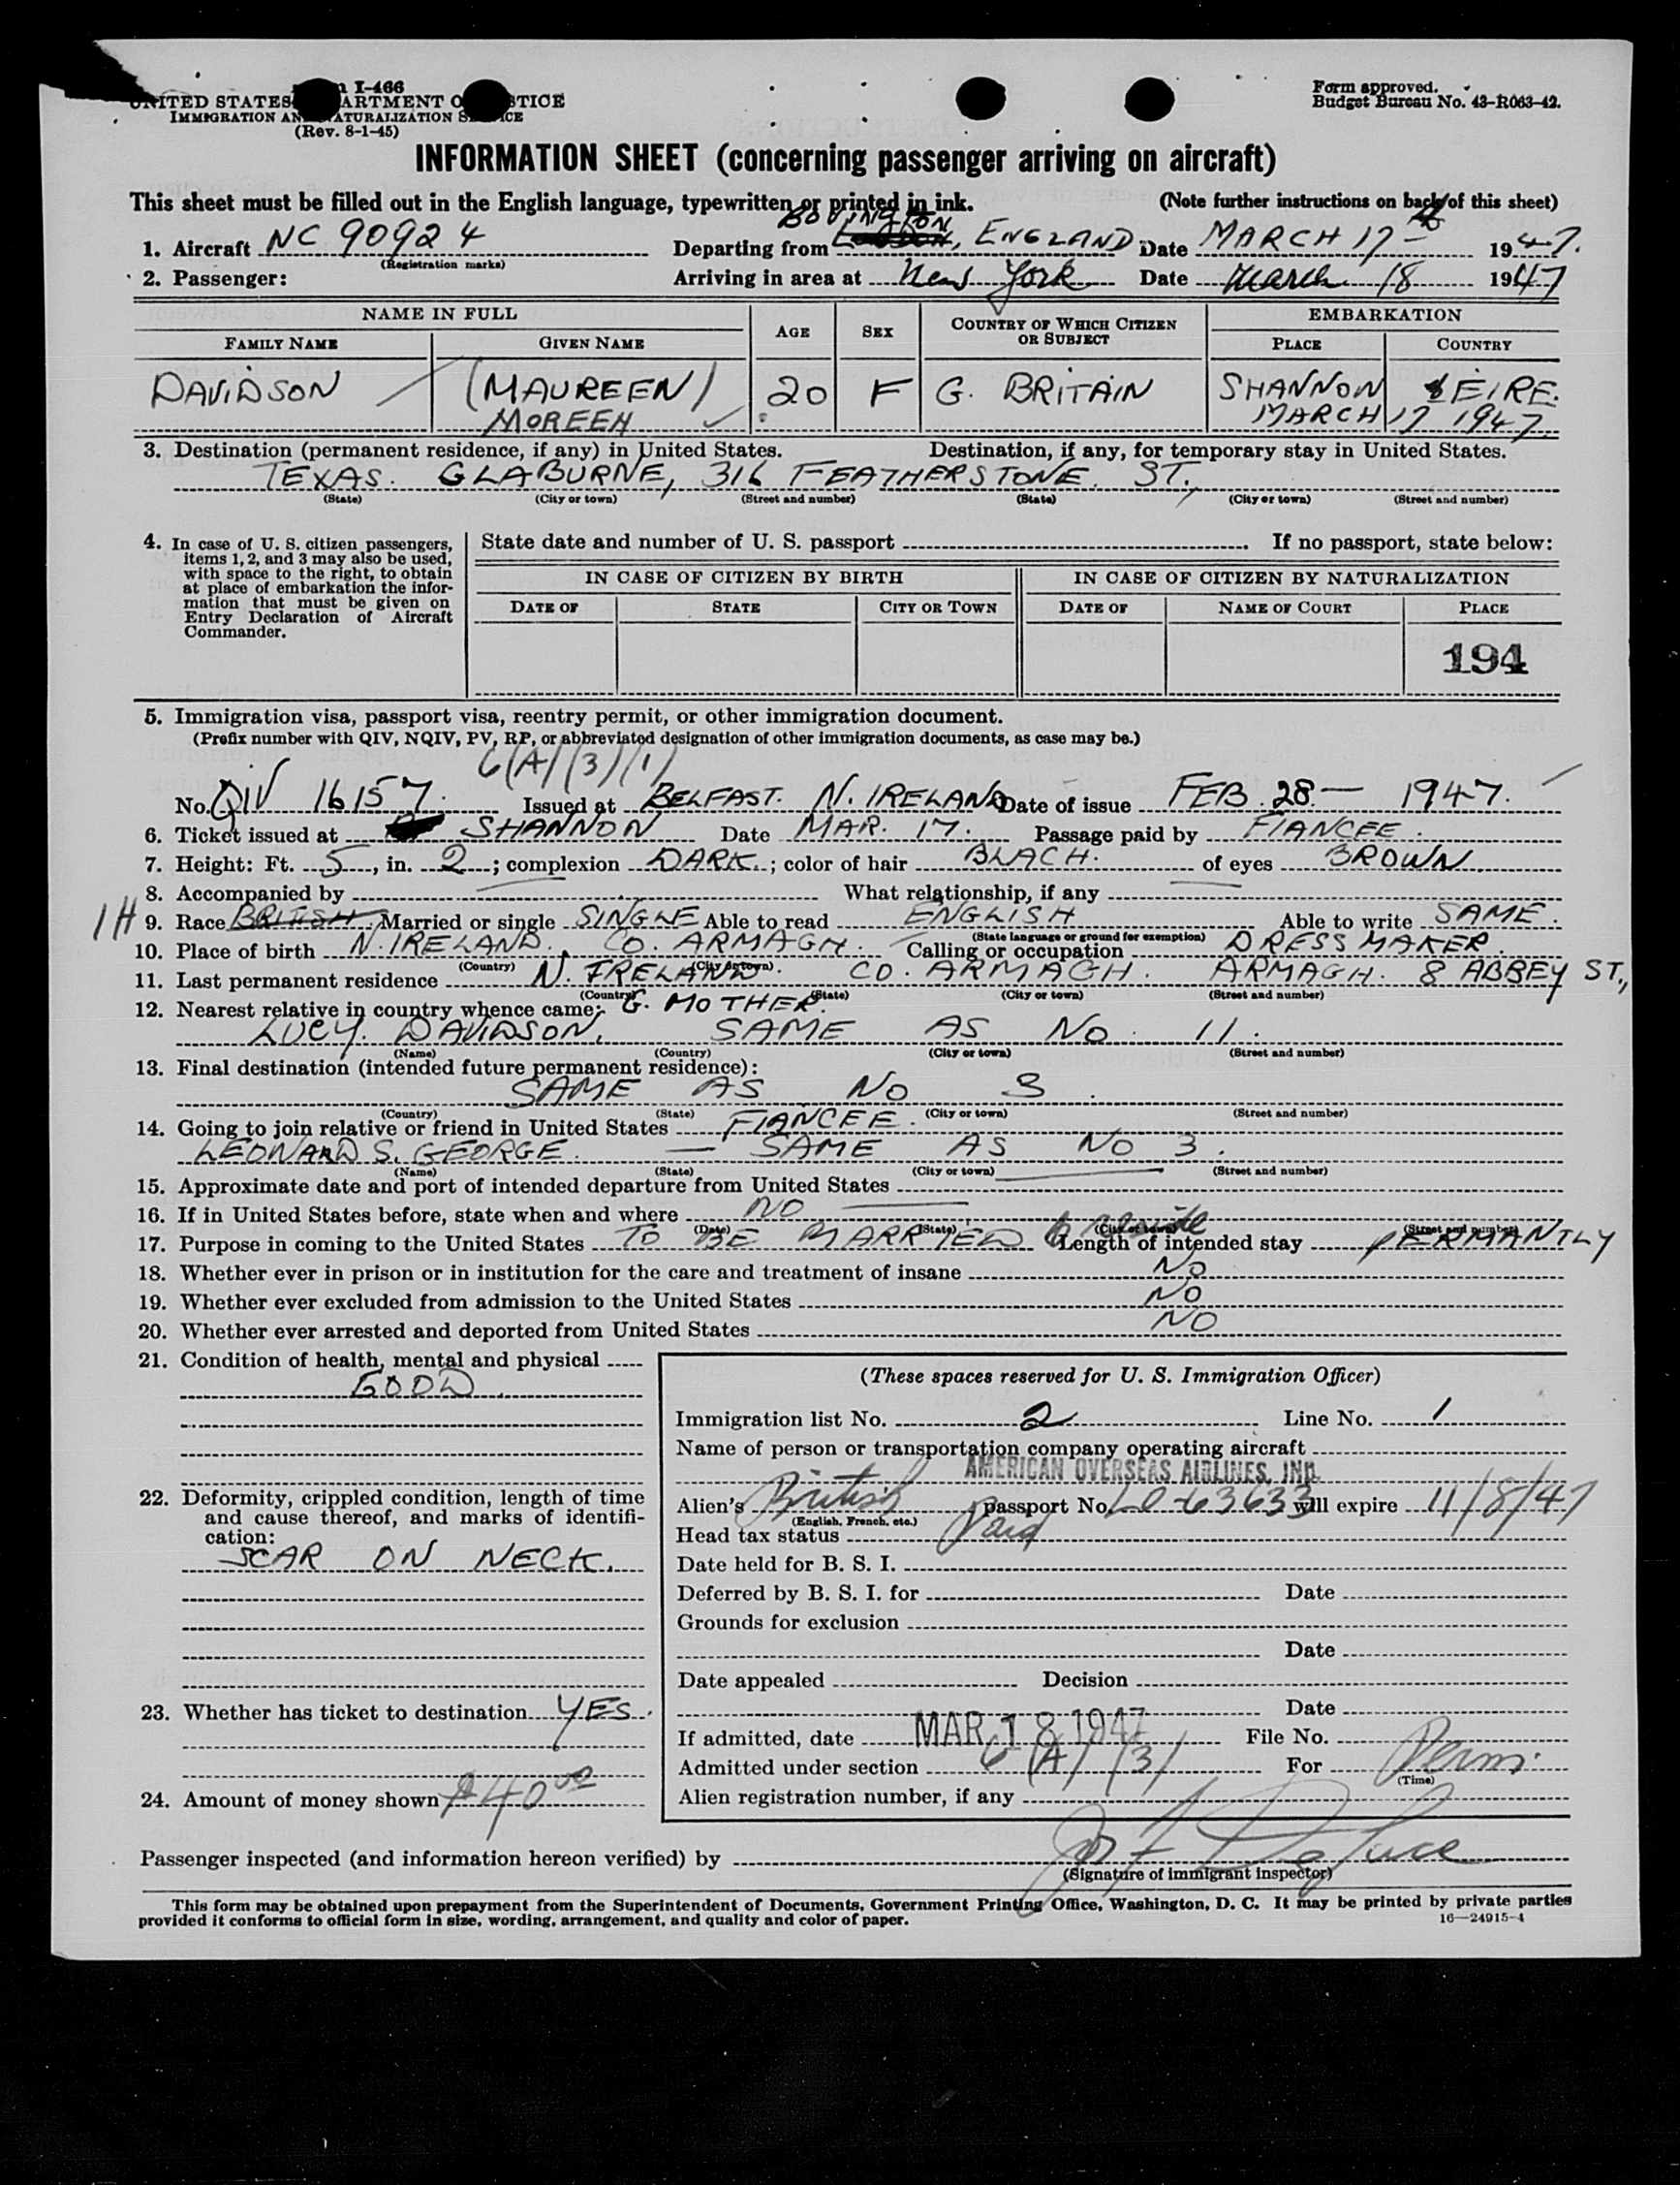 I-466
UNITED STATES DEPARTMENT OF JUSTICE
IMMIGRATION AND NATURALIZATION SERVICE
(Rev. 8-1-45)
Form approved.
Budget Bureau No. 43-R063-42.
INFORMATION SHEET (concerning passenger arriving on aircraft)
This sheet must be filled out in the English language, typewritten or printed in ink. (Note further instructions on back of this sheet)
BOVINGTON
1. Aircraft NC 90924 Departing from LONDON, ENGLAND Date MARCH 17th 1947.
(Registration marks)
2. Passenger: Arriving in area at New York Date March 18 1947
NAME IN FULL AGE SEX COUNTRY OF WHICH CITIZEN OR SUBJECT EMBARKATION
FAMILY NAME GIVEN NAME PLACE COUNTRY
DAVIDSON (MAUREEN) 20 F G. BRITAIN SHANNON EIRE.
MOREEN MARCH 17 1947.
3. Destination (permanent residence, if any) in United States. Destination, if any, for temporary stay in United States.
TEXAS. GLABURNE, 316 FEATHERSTONE. ST.,
(State) (City or town) (Street and number) (State) (City or town) (Street and number)
4. In case of U. S. citizen passengers, items 1, 2, and 3 may also be used, with space to the right, to obtain at place of embarkation the information that must be given on Entry Declaration of Aircraft Commander.
State date and number of U. S. passport . If no passport, state below:
IN CASE OF CITIZEN BY BIRTH IN CASE OF CITIZEN BY NATURALIZATION
DATE OF STATE CITY OR TOWN DATE OF NAME OF COURT PLACE
194
5. Immigration visa, passport visa, reentry permit, or other immigration document.
(Prefix number with QIV, NQIV, PV, RP, or abbreviated designation of other immigration documents, as case may be.)
6(A)(3)(1)
No. QIV 16157. Issued at BELFAST. N. IRELAND Date of issue FEB. 28.— 1947.
6. Ticket issued at SHANNON Date MAR. 17. Passage paid by FIANCEE.
7. Height: Ft. 5, in. 2; complexion DARK.; color of hair BLACH. of eyes BROWN.
8. Accompanied by What relationship, if any
1H 9. Race BRITISH Married or single SINGLE Able to read ENGLISH Able to write SAME.
(State language or ground for exemption)
10. Place of birth N. IRELAND. CO. ARMAGH. Calling or occupation DRESS MAKER.
(Country) (City or town)
11. Last permanent residence N. IRELAND. CO. ARMAGH. ARMAGH. 8 ABBEY ST.,
(Country) (State) (City or town) (Street and number)
12. Nearest relative in country whence came: G. MOTHER.
LUCY. DAVIDSON, SAME AS NO. 11.
(Name) (Country) (City or town) (Street and number)
13. Final destination (intended future permanent residence):
SAME AS NO 3.
(Country) (State) (City or town) (Street and number)
14. Going to join relative or friend in United States FIANCEE.
LEONARD S. GEORGE. — SAME AS NO 3.
(Name) (State) (City or town) (Street and number)
15. Approximate date and port of intended departure from United States
16. If in United States before, state when and where NO
(Date) (State) (City or town) (Street and number)
17. Purpose in coming to the United States TO BE MARRIED & reside Length of intended stay PERMANTLY
18. Whether ever in prison or in institution for the care and treatment of insane NO
19. Whether ever excluded from admission to the United States NO
20. Whether ever arrested and deported from United States NO
21. Condition of health, mental and physical
GOOD.
22. Deformity, crippled condition, length of time and cause thereof, and marks of identification:
SCAR ON NECK.
23. Whether has ticket to destination YES.
24. Amount of money shown $40 00
(These spaces reserved for U. S. Immigration Officer)
Immigration list No. 2 Line No. 1
Name of person or transportation company operating aircraft
AMERICAN OVERSEAS AIRLINES, INC.
Alien's British passport No. LO-63633 will expire 11/8/47
(English, French, etc.)
Head tax status Paid
Date held for B. S. I.
Deferred by B. S. I. for Date
Grounds for exclusion
Date
Date appealed Decision
Date
If admitted, date MAR 18 1947 File No.
Admitted under section 6(A)(3) For Perm.
(Time)
Alien registration number, if any
Passenger inspected (and information hereon verified) by
(Signature of immigrant inspector)
This form may be obtained upon prepayment from the Superintendent of Documents, Government Printing Office, Washington, D. C. It may be printed by private parties
provided it conforms to official form in size, wording, arrangement, and quality and color of paper. 16—24915-4